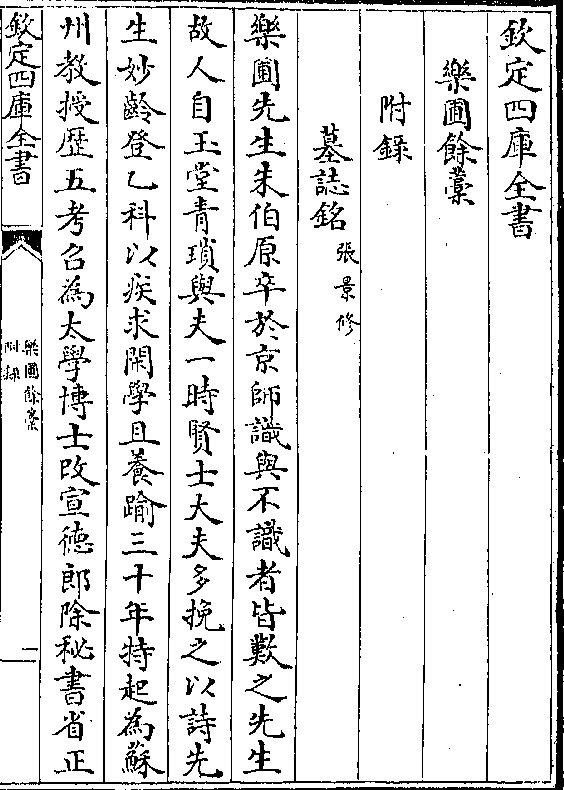 欽定四庫全書
樂圃餘藁
附錄
墓誌銘 張景修
樂圃先生朱伯原卒於京師識與不識者皆歎之先生
故人自玉堂青瑣與夫一時賢士大夫多挽之以詩先
生妙齡登乙科以疾求閑學且養踰三十年特起為蘇
州教授歴五考召為太學博士改宣徳郎除秘書省正
欽定四庫全書
樂圃餘藁
附錄
一